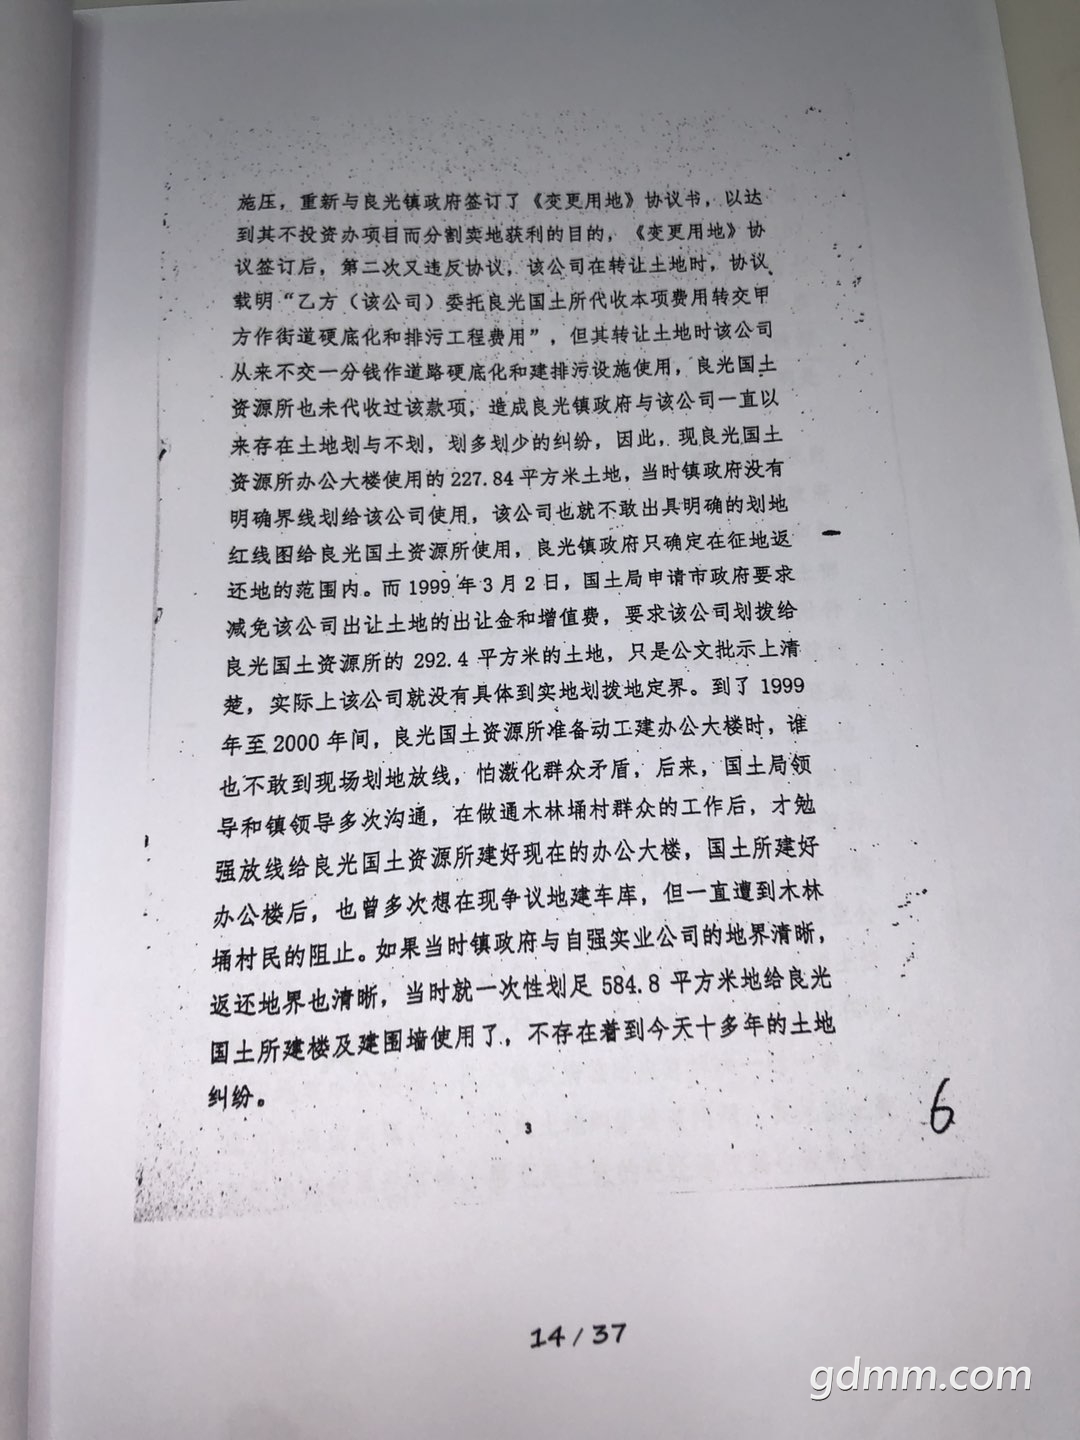 施压，重新与良光镇政府签订了《变更用地》协议书，以达
到其不投资办项目而分割实地获利的目的，《变更用地》协
议签订后，第二次又违反协议，该公司在转让土地时，协议
载明“乙方（该公司）委托良光国土所代收本项费用转交甲
方作街道硬底化和排污工程费用”，但其转让土地时该公司
从来不交一分钱作道路硬底化和建排污设施使用，良光国土
资源所也未代收过该款项，造成良光镇政府与该公司一直以
来存在土地划与不划，划多划少的纠纷，因此，现良光国土
资源所办公大楼使用的227.84平方米土地，当时镇政府没有
明确界线划给该公司使用，该公司也就不敢出具明确的划地
红线图给良光国土资源所使用，良光镇政府只确定在征地返
还地的范围内。而1999年3月2日，国土局申请市政府要求
减免该公司出让土地的出让金和增值费，要求该公司划拨给
良光国土资源所的292.4平方米的土地，只是公文批示上清
楚，实际上该公司就没有具体到实地划拨地定界。到了1999
年至2000年间，良光国土资源所准备动工建办公大楼时，谁
也不敢到现场划地放线，怕激化群众矛盾，后来，国土局领
导和镇领导多次沟通，在做通木林埇村群众的工作后，才勉
强放线给良光国土资源所建好现在的办公大楼，国土所建好
办公楼后，也曾多次想在现争议地建车库，但一直遭到木林
埇村民的阻止。如果当时镇政府与自强实业公司的地界清晰，
返还地界也清晰，当时就一次性划足584.8平方米地给良光
国土所建楼及建围墙使用了，不存在着到今天十多年的土地
纠纷。
3
6
14/37
gdmm.com